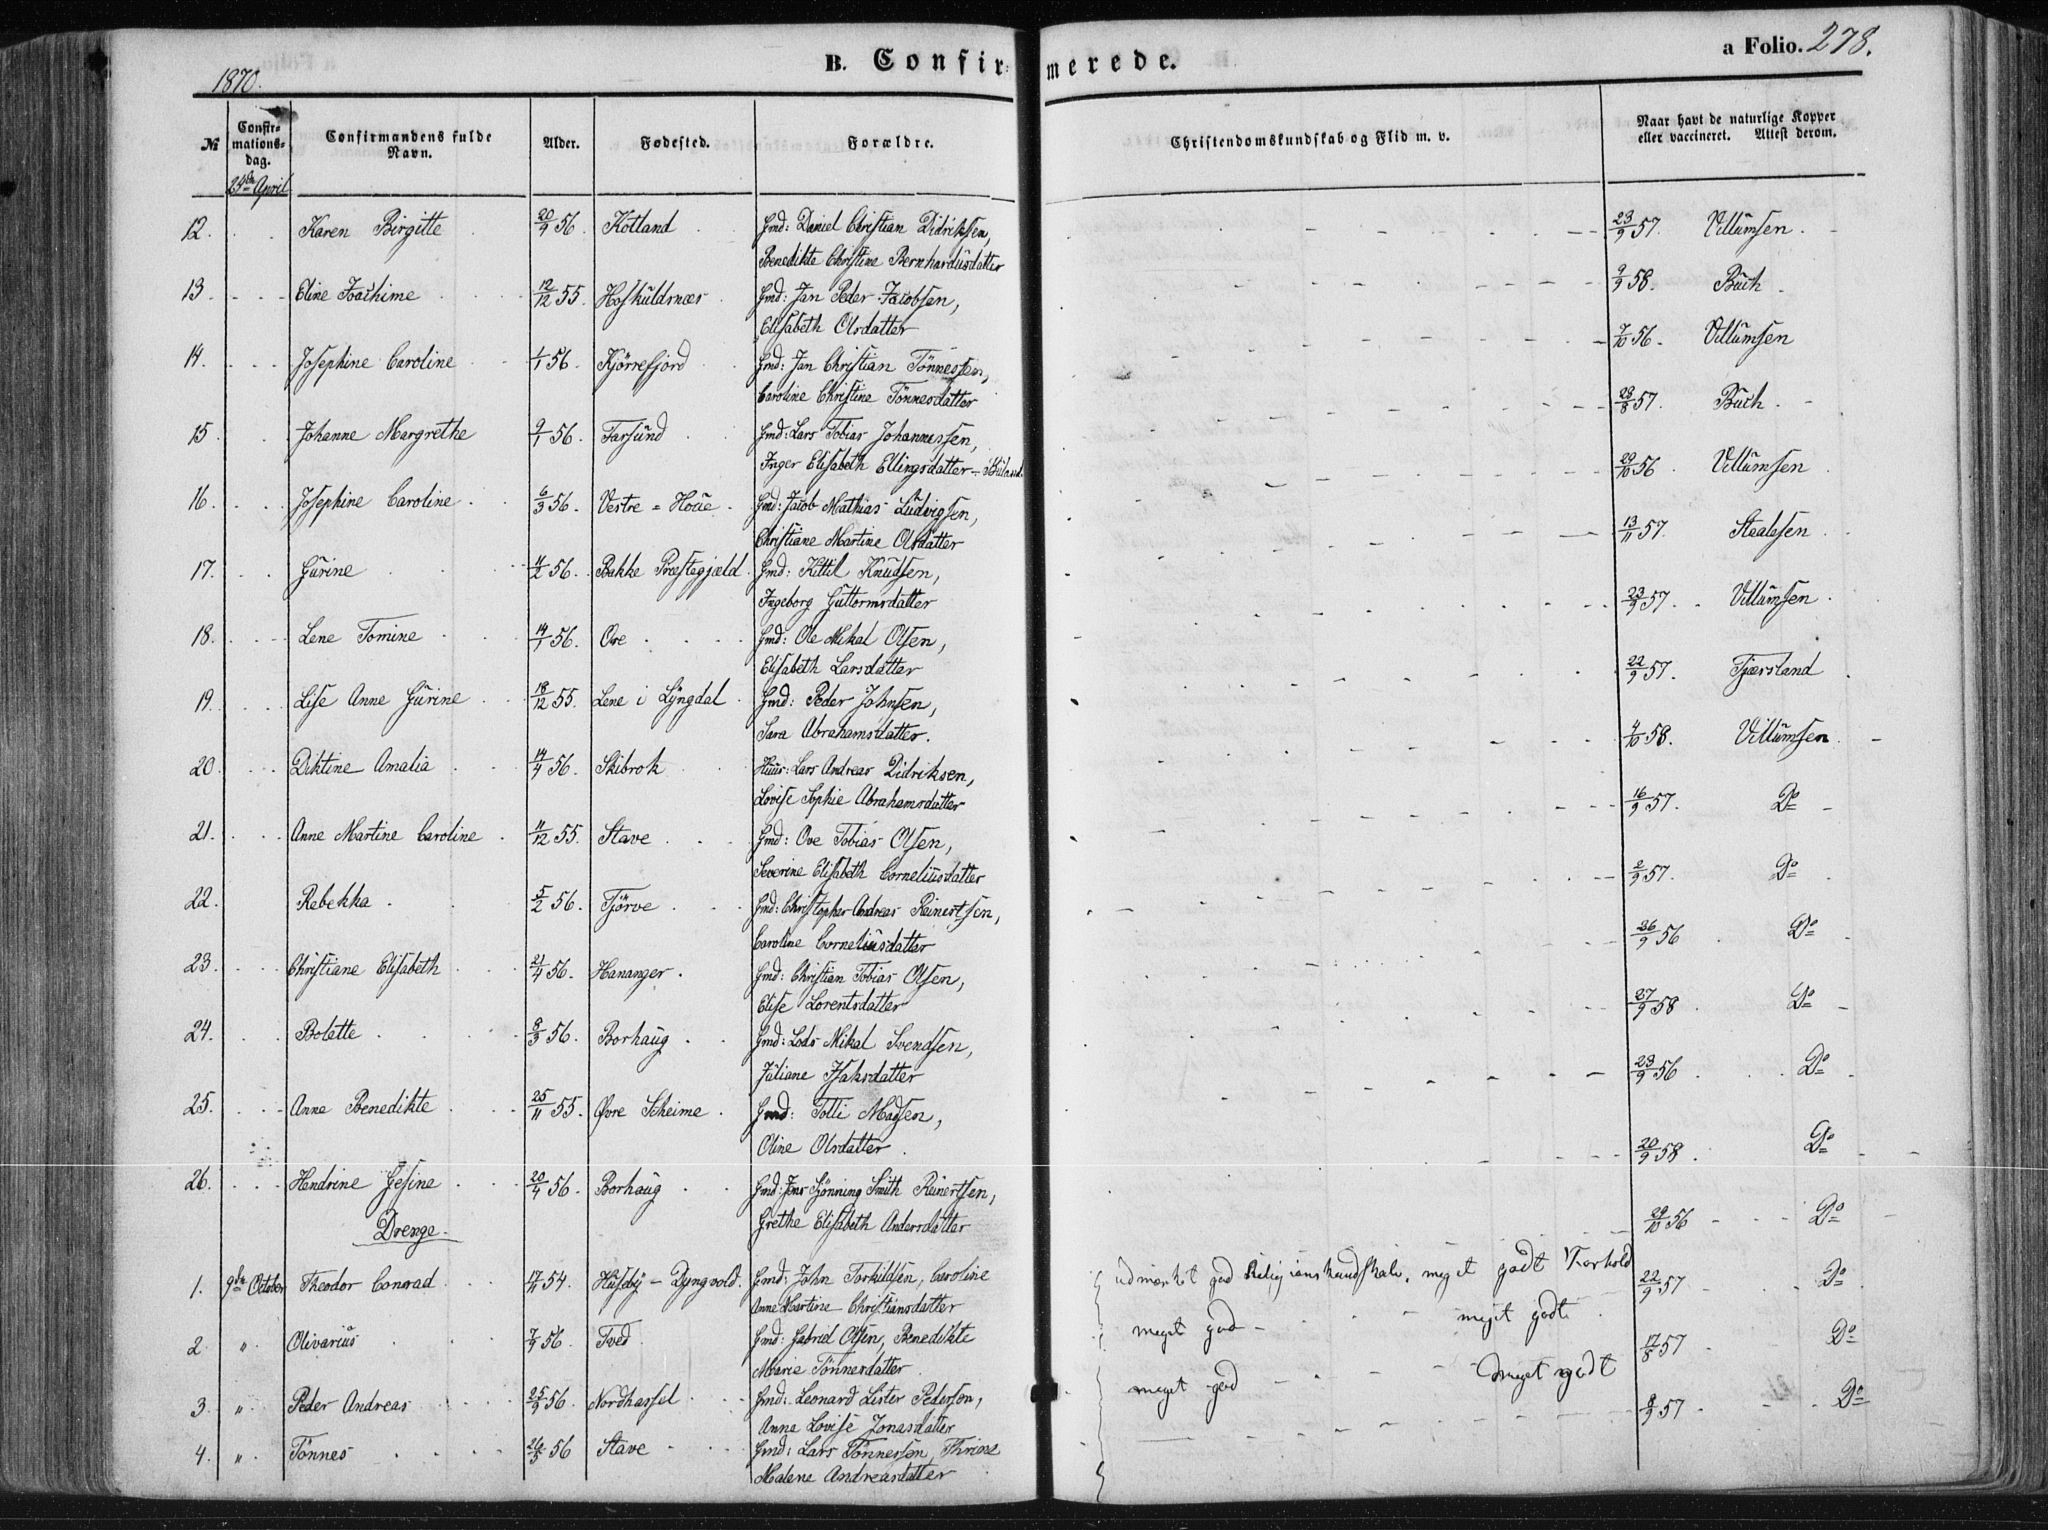 1870.
B. Confirmerede.
a Folio. 278.
№
Confirmationsdag.
Confirmandens fulde Navn.
Alder.
Fødested.
Forældre.
Christendomskundskab og Flid m. v.
Naar havt de naturlige Kopper eller vaccineret. Attest derom.
24de April
12. Karen Birgitte 20/9 56 Kotland Gmd: Daniel Christian Didriksen, 23/9 57. Villumsen
Benedikte Christine Bernhardusdatter
13. Eline Joachime 12/12 55. Hoskuldsnæs Gmd: Jan Peder Jacobsen, 9/9 58. Buch
Elisabeth Olsdatter
14. Josephine Caroline 1/1 56. Kjörrefjord Gmd: Jan Christian Tönnessen, 7/10 56. Villumsen
Caroline Christine Tönnesdatter
15. Johanne Margrethe 9/1 56. Farsund Gmd: Lars Tobias Johannessen, 28/8 57. Buch
Inger Elisabeth Ellingsdatter
16. Josephine Caroline 6/3 56. Vestre = Houe Gmd: Jacob Mathias Ludvigsen, 29/10 56 Villumsen
Christiane Martine Olsdatter
17. Gurine 4/2 56. Bakke Præstegjæld Gmd: Kittil Knudsen, 13/11 57. Staalesen
Ingeborg Guttormsdatter
18. Lene Tomine 14/1 56. Ore Gmd: Ole Mikal Olsen, 23/9 57. Villumsen
Elisabeth Larsdatter
19. Lise Anne Gurine 18/12 55. Lene i Lyngdal Gmd: Peder Johnsen, 22/9 57. Tjærsland
Sara Abrahamsdatter.
20. Diktine Amalia 14/4 56. Skibrok Huus: Lars Andreas Didriksen, 4/10 58. Villumsen
Lovise Sophie Abrahamsdatter
21. Anne Martine Caroline 11/12 55. Stave Gmd: Ove Tobias Olsen, 16/9 57. Do
Severine Elisabeth Corneliusdatter
22. Rebekka 5/2 56. Tjörve Gmd: Christopher Andreas Reinertsen, 2/9 57. Do
Caroline Corneliusdatter
23. Christiane Elisabeth 21/4 56. Hananger. Gmd: Christian Tobias Olsen, 26/9 56 Do
Elise Lorentsdatter
24. Bolette 8/3 56. Borhaug Gmd: Lods Mikal Svendsen, 27/9 58 Do
Juliane Isaksdatter
25. Anne Benedikte 25/11 55. Øvre Skeime Gmd: Tolli Madsen, 23/9 56 Do
Oline Olsdatter
26. Hendrine Gesine 20/4 56. Borhaug Gmd: Jens Grönning Smith Reinertsen, 20/9 58. Do
Grethe Elisabeth Andersdatter
Drenge. 29/10 56 Do
1. 9de October Theodor Conrad 54. Huseby - Dyngvold. Gmd: John Torkildsen, Caroline udmærket god Religionskundskab, meget godt Forhold 22/9 57 Do
Anne Martine Christiansdatter
2. " Olivarius 7/9 56. Tved Gmd: Gabriel Olsen, Benedikte meget god - meget godt 17/8 57 Do
Marie Tönnesdatter
3. " Peder Andreas 25/9 56. Nordhassel Gmd: Leonard Lister Pedersen, meget god - meget godt 8/9 57 Do
Anne Lovise Jonasdatter
4. " Tönnes 56 Stave Gmd: Lars Tönnessen, Thrine
Malene Andreasdatter